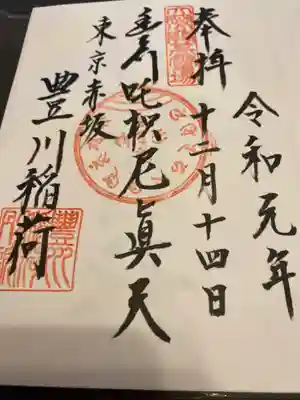 令和元年
奉拝 十二月十四日
豊川吒枳尼眞天
東京赤坂
豊川稲荷